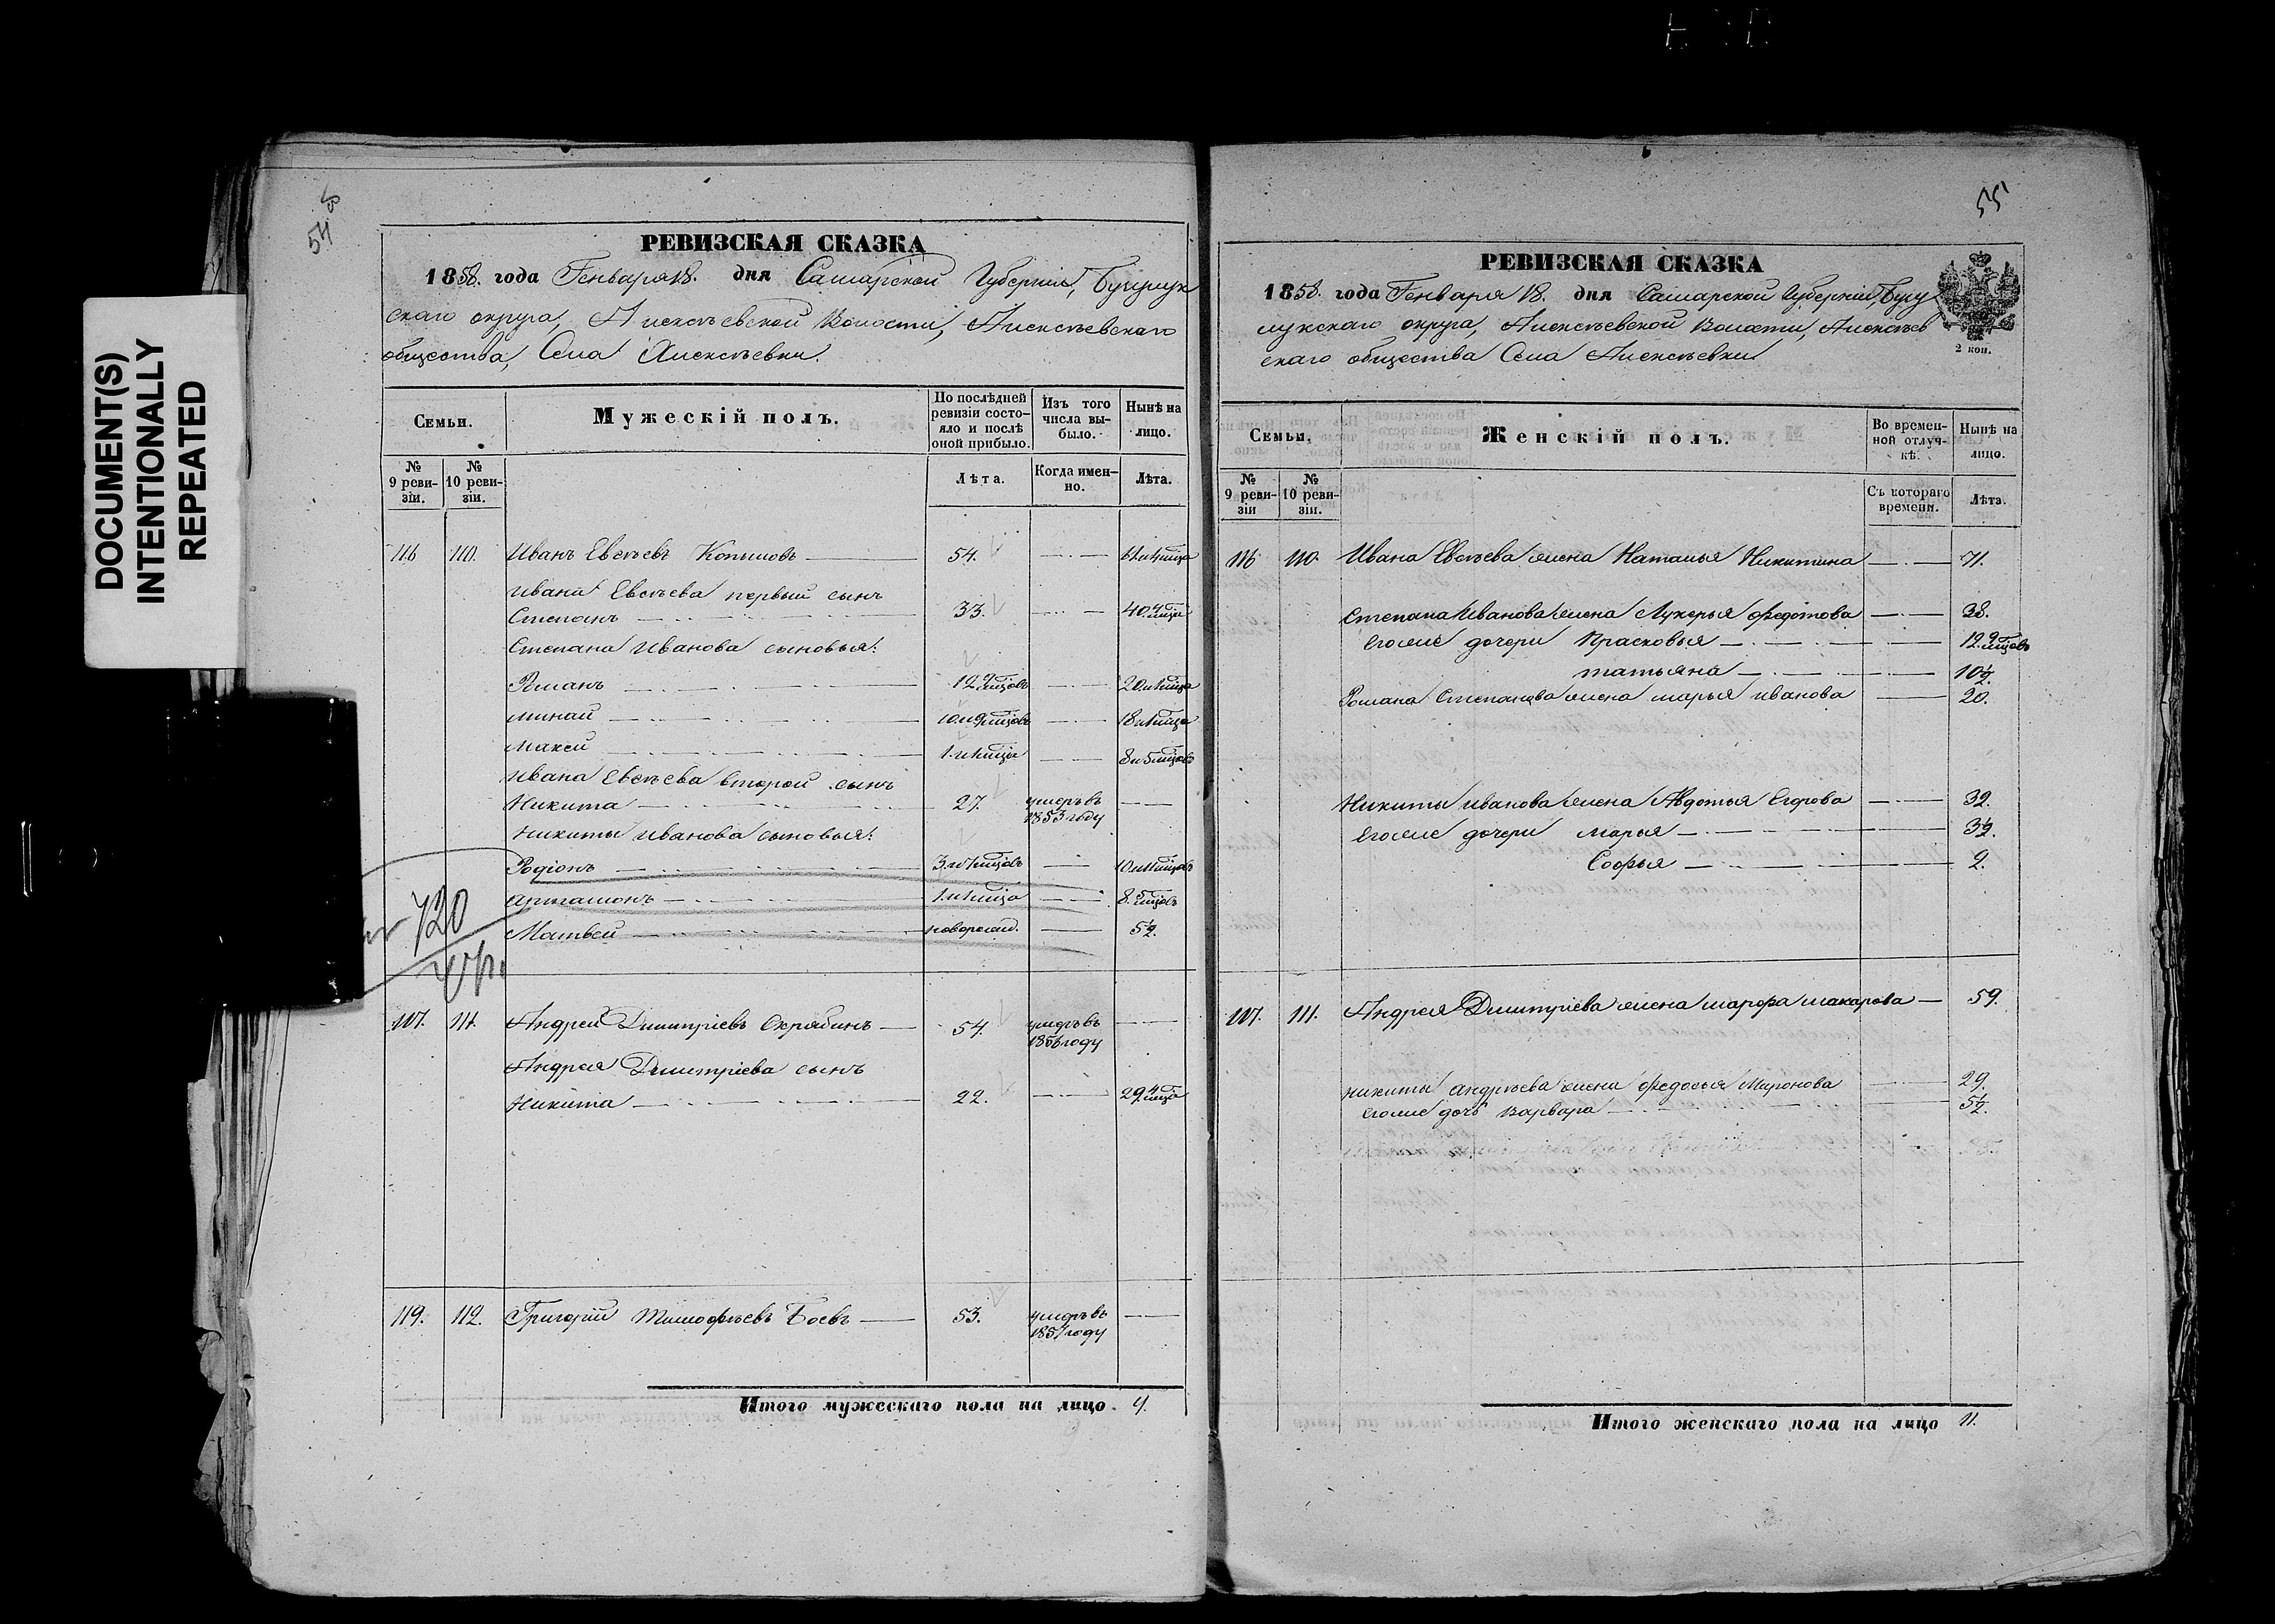 DOCUMENT(S)
INTENTIONALLY
REPEATED
54
РЕВИЗСКАЯ СКАЗКА
1858. года Генваря 18. дня Самарской Губерніи, Бугурук
скаго округа, Алексѣевской Волости, Алексѣевскаго
общества, Села Алексѣевки.
Семьи.
Мужескій полъ.
По послѣдней ревизіи состояло и послѣ оной прибыло.
Изъ того числа выбыло.
Нынѣ на лицо.
№ 9 ревизіи.
№ 10 ревизіи.
Лѣта.
Когда именно.
Лѣта.
116 110. Иванъ Евсѣевъ 54.
Ивана Евсѣева первый сынъ
Степанъ 33. 40. 4 мца
Степана Иванова сыновья:
Романъ 12. 9 мцовъ 20 и 1 мца
Минай 10 и 9 мцовъ 18 и 1 мца
Мокей 1 и 1 мца 8 и 5 мцовъ
Ивана Евсѣева второй сынъ
Никита 27. умеръ въ 1853 году
Никиты Иванова сыновья:
Родіонъ
Артамонъ 1 и 1 мца 8. 5 мцовъ
Матвей новорожд. 5½.
720
117. 111. Андрей Димитріевъ Скрябинъ 54. умеръ въ 1856 году
Андрея Димитріева сынъ
Никита 22. 29. 4 мца
119. 112. Григорій Тимофѣевъ Боевъ 53. умеръ въ 1857 году
Итого мужескаго пола на лицо.
55
РЕВИЗСКАЯ СКАЗКА
1858. года Генваря 18. дня Самарской Губерніи, Бугу
2 коп.
скаго общества Села Алексѣевки
Семьи.
Женскій полъ.
Во временной отлучкѣ.
Нынѣ на лицо.
№ 9 ревизіи
№ 10 ревизіи.
Съ котораго времени.
Лѣта.
116 110. Ивана Евсѣева жена Наталья Никитина 71.
Степана Иванова жена Лукерья Федотова 38.
Его же дочери Прасковья 12. 9 мцовъ
Татьяна 10½.
Романа Степанова жена Марья Иванова 20.
Никиты Иванова жена Авдотья Егорова 32.
Его же дочери Марья 3½.
Софья 2.
117. 111. Андрея Димитріева жена Марфа Макарова 59.
Никиты Андрѣева жена Федосья Миронова 29.
Его же дочь Варвара 5½.
Итого женскаго пола на лицо 11.